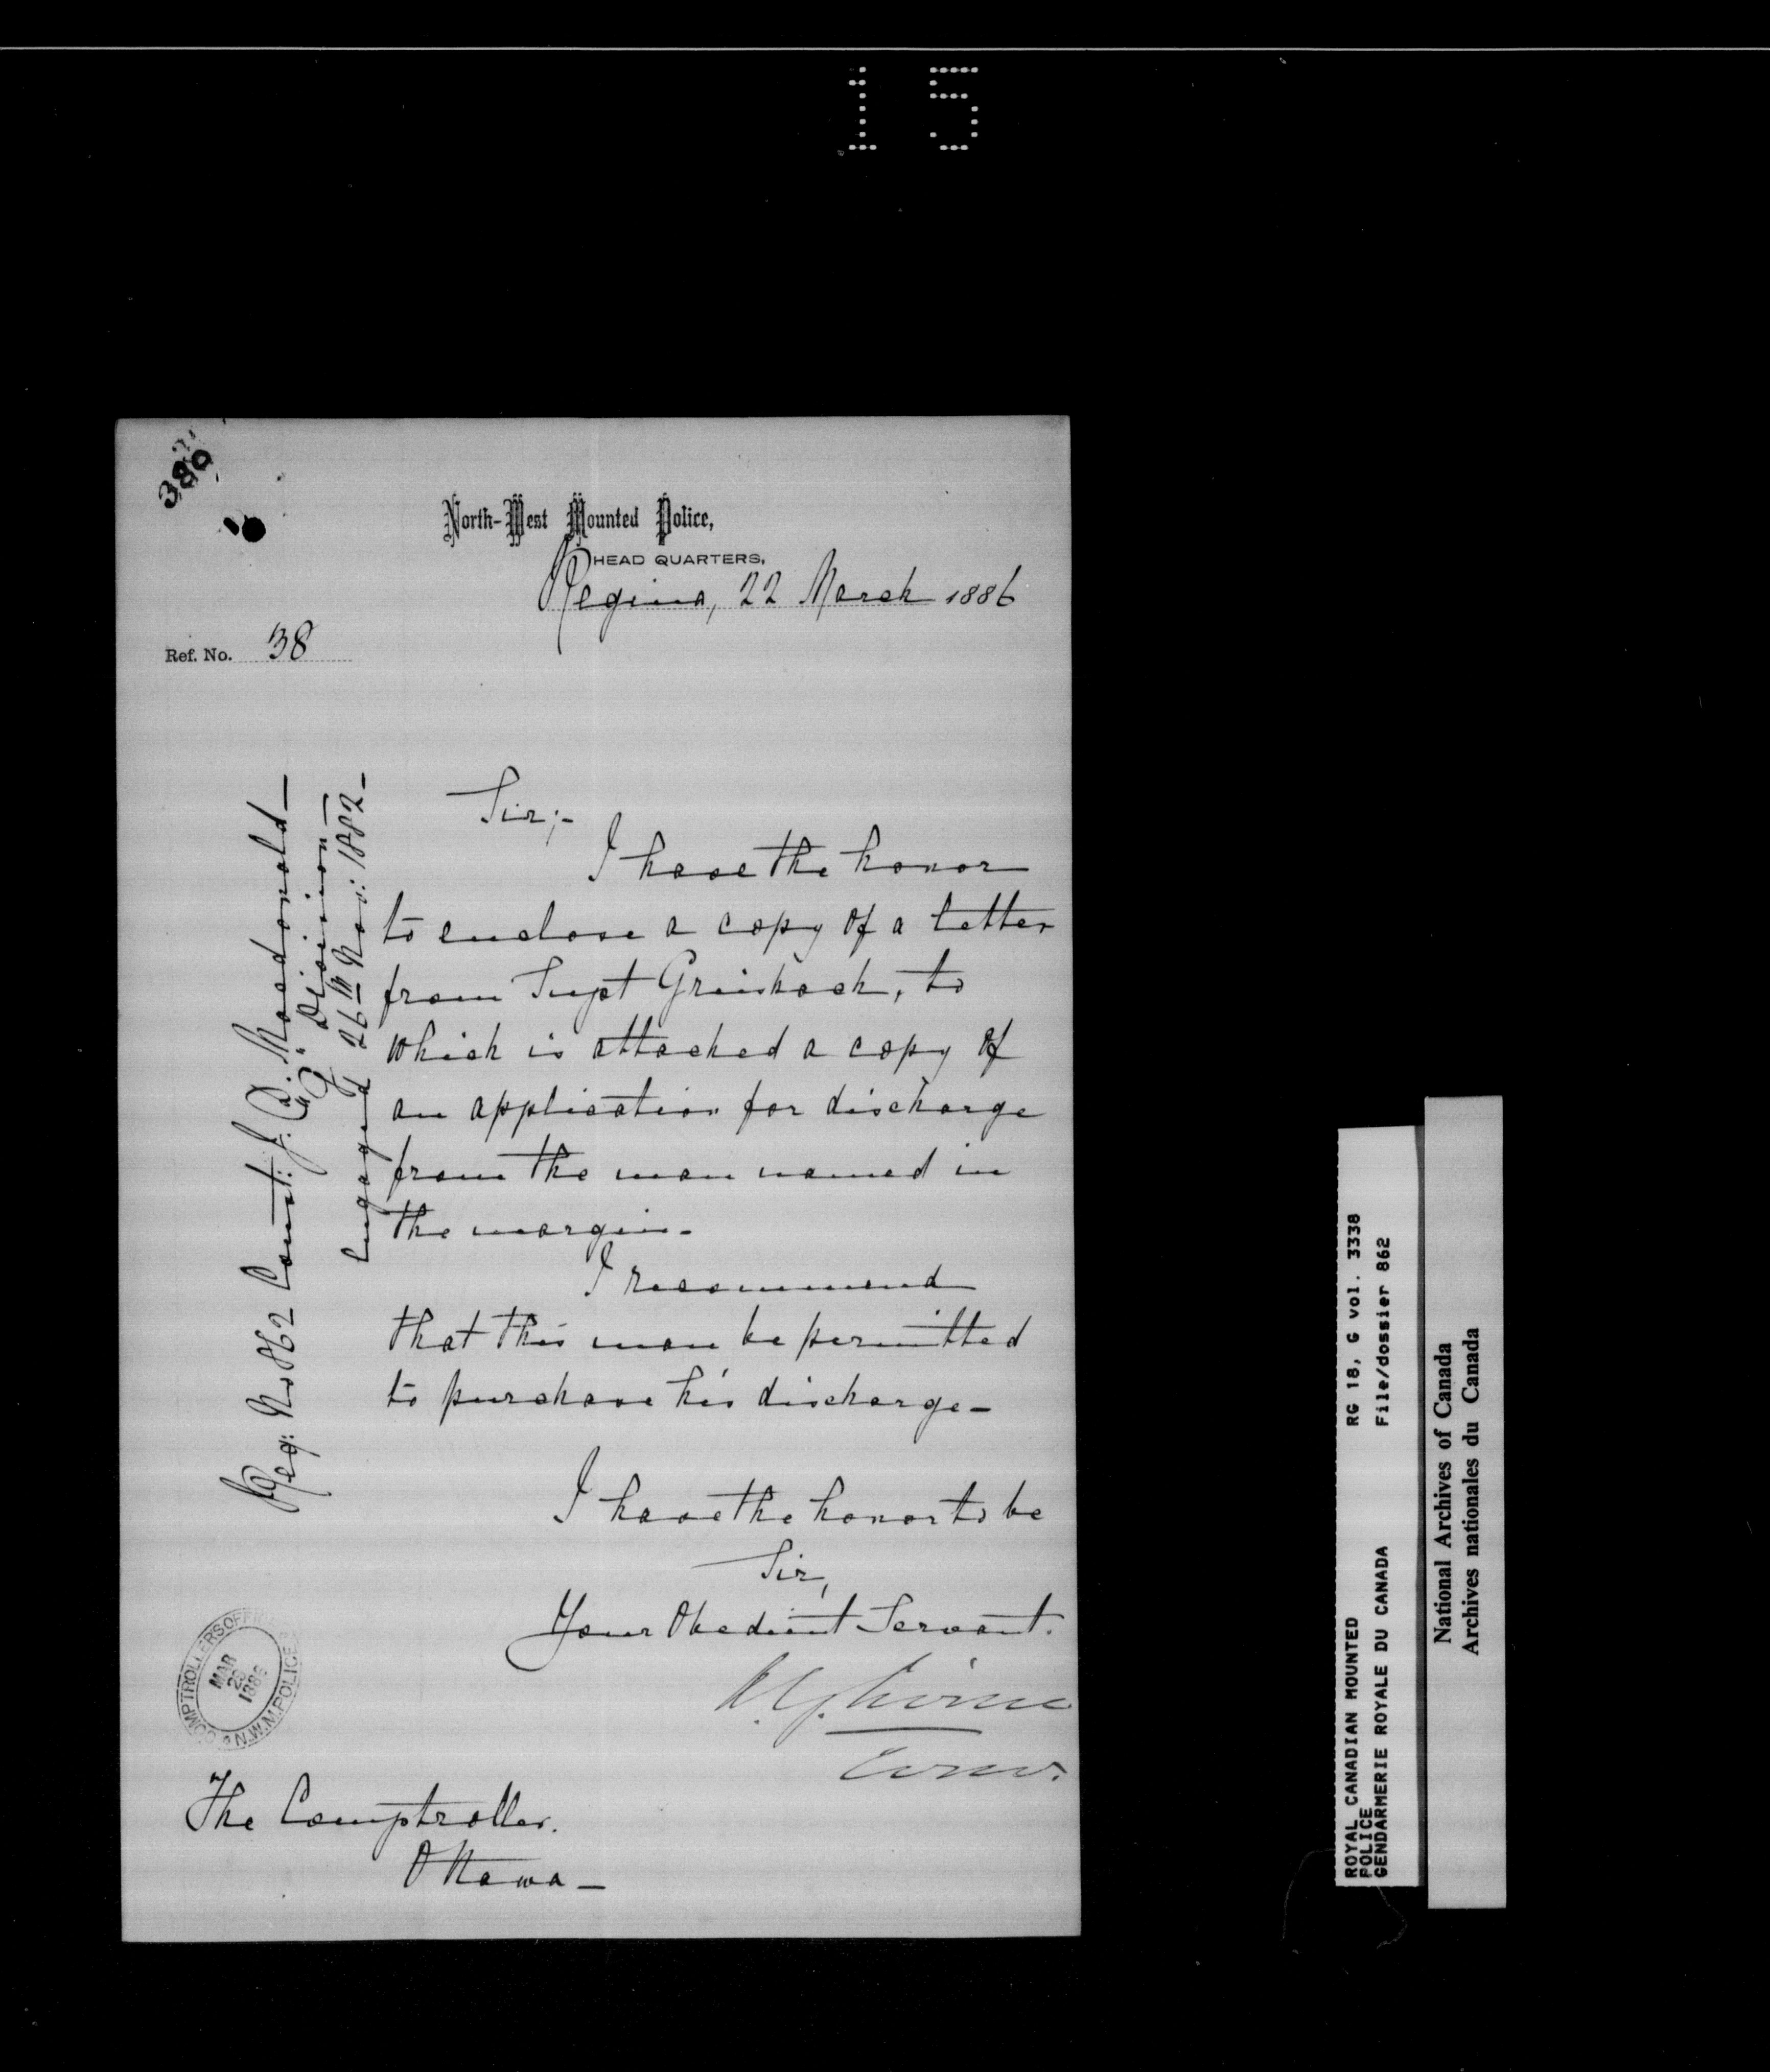 15
380
North-West Mounted Police,
HEAD QUARTERS,
Regina, 22 March 1886
Ref. No. 38
Sir;-
I have the honor
to enclose a copy of a letter
from Supt Griesbach, to
which is attached a copy of
an application for discharge
from the man named in
the margin-
I recommend
that this man be permitted
to purchase his discharge-
I have the honor to be
Sir,
Your Obedient Servant.
A.G. Irvine
Comr.
Reg: No 862 Const: J. D. Macdonald-
"G" Division-
Engaged 26th Nov: 1882-
COMPTROLLERS OFFICE
MAR
29
1886
N.W.M. POLICE
The Comptroller.
Ottawa-
ROYAL CANADIAN MOUNTED
POLICE
GENDARMERIE ROYALE DU CANADA
RG 18, G vol. 3338
File/dossier 862
National Archives of Canada
Archives nationales du Canada